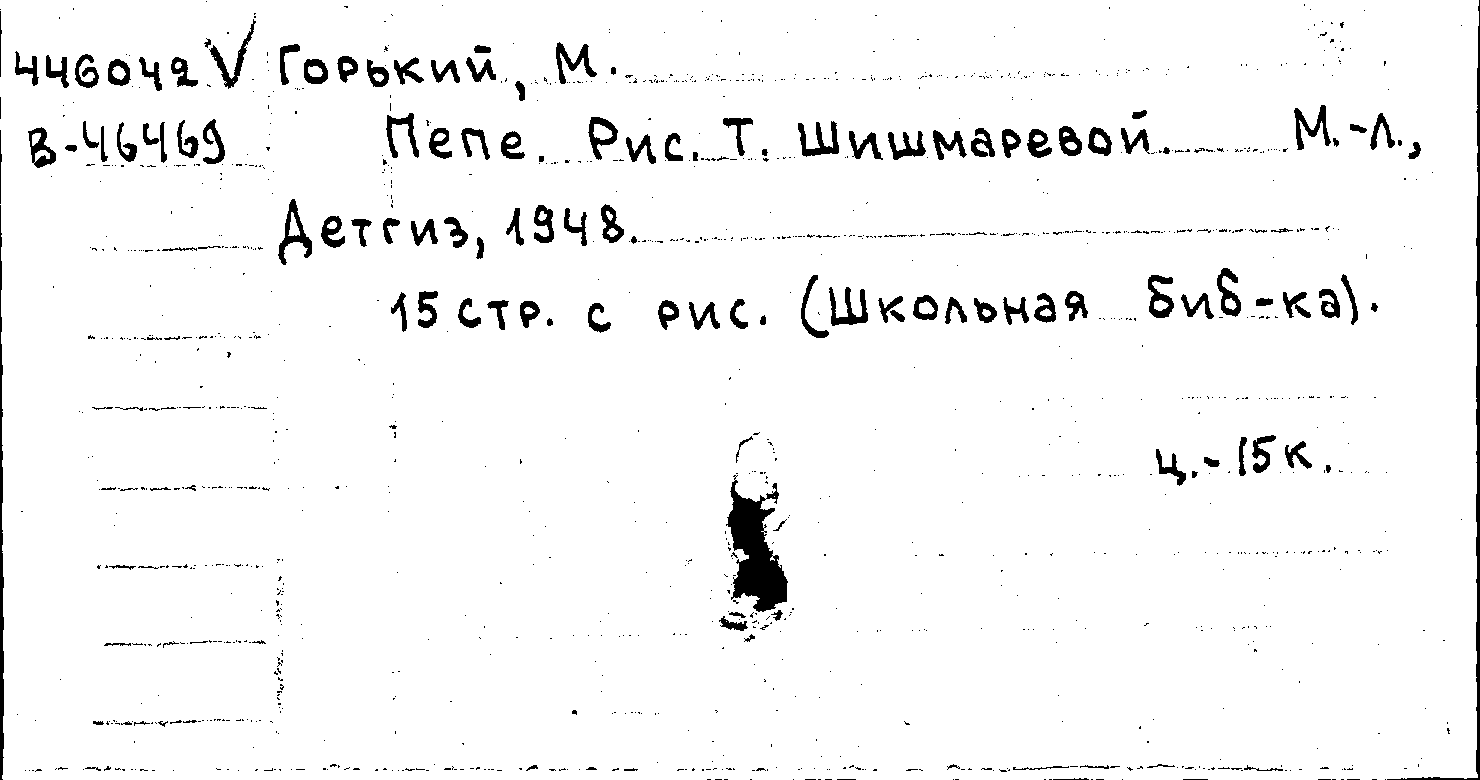 446042 V Горький, М.
В-46469 Пепе. Рис. Т. Шишмаревой. М.-Л.,
Детгиз, 1948.
15 стр. с рис. (Школьная биб-ка).
ц.-15к.